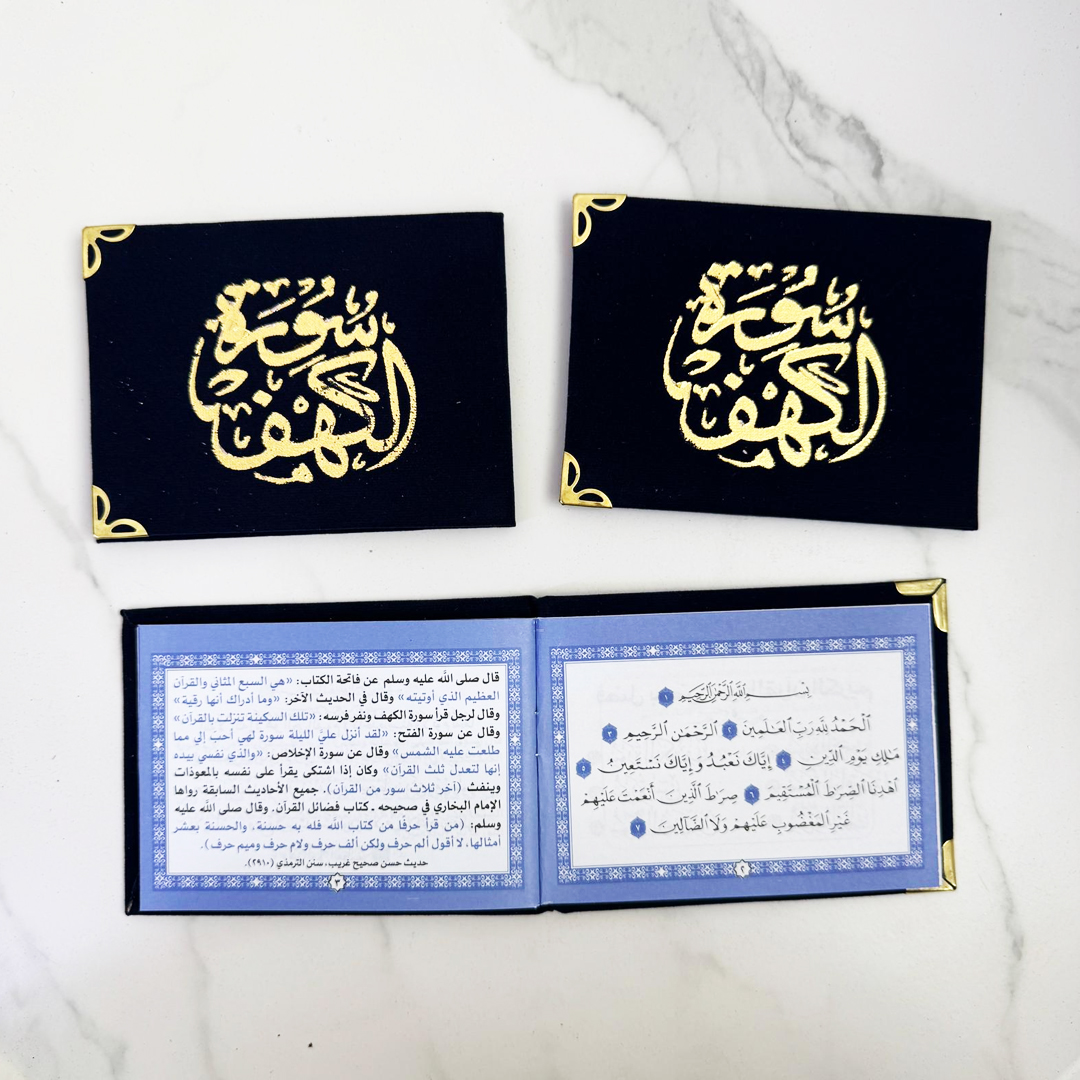 سُورَة
الكهف
سُورَة
الكهف
بِسْمِ ٱللَّهِ ٱلرَّحْمَٰنِ ٱلرَّحِيمِ ١
ٱلْحَمْدُ لِلَّهِ رَبِّ ٱلْعَٰلَمِينَ ٢ ٱلرَّحْمَٰنِ ٱلرَّحِيمِ ٣
مَٰلِكِ يَوْمِ ٱلدِّينِ ٤ إِيَّاكَ نَعْبُدُ وَإِيَّاكَ نَسْتَعِينُ ٥
ٱهْدِنَا ٱلصِّرَٰطَ ٱلْمُسْتَقِيمَ ٦ صِرَٰطَ ٱلَّذِينَ أَنْعَمْتَ عَلَيْهِمْ
غَيْرِ ٱلْمَغْضُوبِ عَلَيْهِمْ وَلَا ٱلضَّآلِّينَ ٧
٢
قال صلى الله عليه وسلم عن فاتحة الكتاب: «هي السبع المثاني والقرآن
العظيم الذي أوتيته» وقال في الحديث الآخر: «وما أدراك أنها رقية»
وقال لرجل قرأ سورة الكهف ونفر فرسه: «تلك السكينة تنزلت بالقرآن»
وقال عن سورة الفتح: «لقد أنزل عليَّ الليلة سورة لهي أحبّ إلي مما
طلعت عليه الشمس» وقال عن سورة الإخلاص: «والذي نفسي بيده
إنها لتعدل ثلث القرآن» وكان إذا اشتكى يقرأ على نفسه بالمعوذات
وينفث (آخر ثلاث سور من القرآن). جميع الأحاديث السابقة رواها
الإمام البخاري في صحيحه ـ كتاب فضائل القرآن. وقال صلى الله عليه
وسلم: (من قرأ حرفًا من كتاب الله فله به حسنة، والحسنة بعشر
أمثالها، لا أقول ألم حرف ولكن ألف حرف ولام حرف وميم حرف).
حديث حسن صحيح غريب، سنن الترمذي (٢٩١٠).
٣